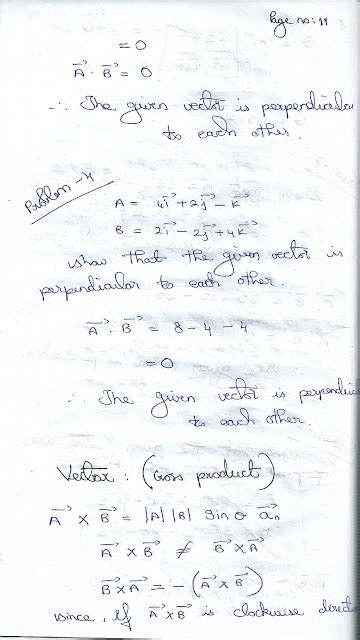 Page no: 11
= 0
A⃗ · B⃗ = 0
∴ The given vector is perpendicular
to each other.
Problem - 4
A = 4i⃗ + 2j⃗ - k⃗
B = 2i⃗ - 2j⃗ + 4k⃗
show that the given vector is
perpendicular to each other.
A⃗ · B⃗ = 8 - 4 - 4
= 0
∴ The given vector is perpendicu
to each other.
Vector : (cross product)
A⃗ × B⃗ = |A| |B| sin θ a⃗n
A⃗ × B⃗ ≠ B⃗ × A⃗
B⃗ × A⃗ = - (A⃗ × B⃗)
since, If A⃗ × B⃗ is clockwise direct